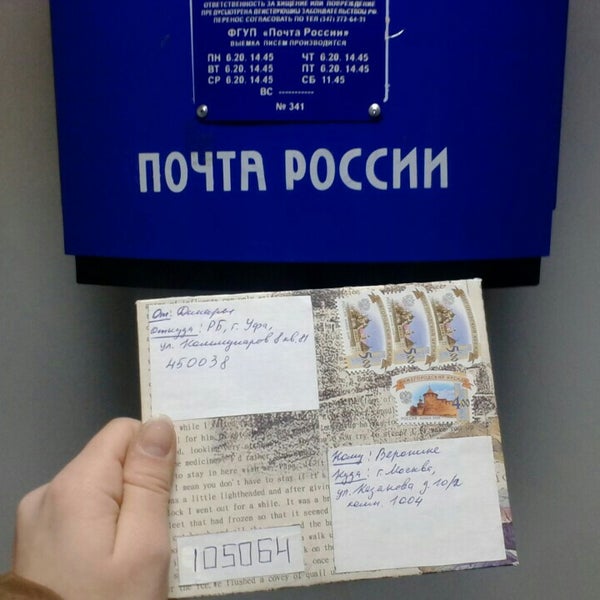 ОТВЕТСТВЕННОСТЬ ЗА ХИЩЕНИЕ ИЛИ ПОВРЕЖДЕНИЕ
ПРЕДУСМОТРЕНА ДЕЙСТВУЮЩИМ ЗАКОНОДАТЕЛЬСТВОМ РФ
ПЕРЕНОС СОГЛАСОВАТЬ ПО ТЕЛ (347) 273-64-21
ФГУП «Почта России»
ВЫЕМКА ПИСЕМ ПРОИЗВОДИТСЯ
ПН 6.20. 14.45 ЧТ 6.20. 14.45
ВТ 6.20. 14.45 ПТ 6.20. 14.45
СР 6.20. 14.45 СБ 11.45
ВС ----------
№ 341
ПОЧТА РОССИИ
От:
Откуда: РБ, г. Уфа,
ул. Коммунаров 8 кв.
450038
5.00
5.00
5.00
НИЖЕГОРОДСКИЙ КРЕМЛЬ
4.00
Кому: Веронике
Куда: г. Москва,
ул. Казакова д 10/2
комн. 1004
while I
for him
looking
medicine I'd rather
to stay in here
I mean you don't have to stay if it's
was a little lighthended and after
lock I went out for a while. It was a
leet that had frozen so that it seemed
105064
ce, we flushed a covey of quail